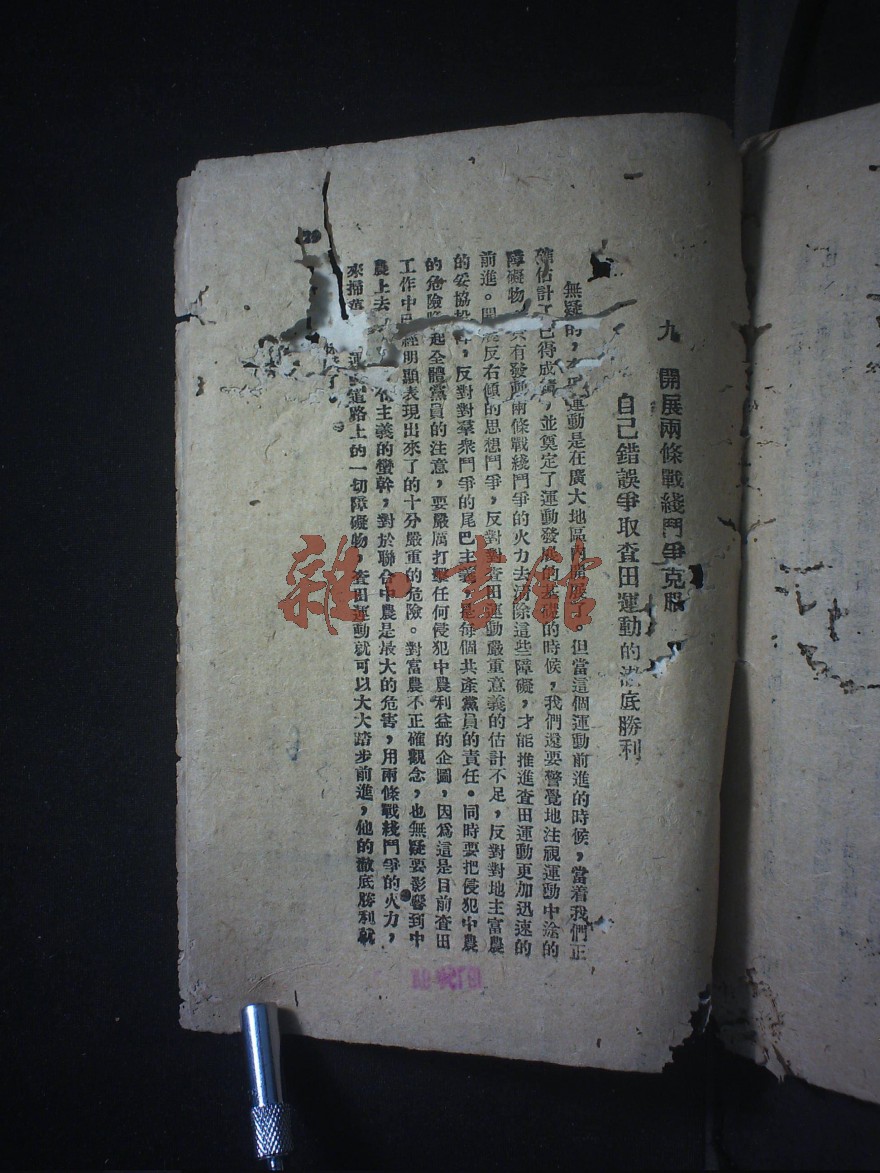 九 開展兩條戰綫鬥爭克服
自己錯誤爭取查田運動的徹底勝利
無疑的，運動是在廣大地區內開展了。但當這個運動前進的時候，當着我們正
確估計了已得成績，並奠定了運動發展的基礎的時候，我們還要警覺地注視運動中途的
障礙物，只有發動兩條戰綫鬥爭的火力去清除這些障礙，才能推進查田運動更加迅速的
前進。開展反右傾的思想鬥爭，反對對查田運動嚴重意義的估計不足，反對對地主富農
的妥協投降，反對對羣衆鬥爭的尾巴主義，是每個共產黨員的責任。同時要把侵犯中農
的危險喚起全體黨員的注意，要嚴厲打擊任何侵犯中農利益的企圖，因爲這是目前查田
工作中已經明顯表現出來了的十分嚴重的危險。對富農不正確觀念，也無疑要影響到中
農上去，主義的蠻幹，對於聯合中農是最大的危害，用兩條戰綫鬥爭的火力，
來掃蕩道路上的一切障礙物，查田運動就可以大大踏步前進，他的徹底勝利就
了。
雜·書館